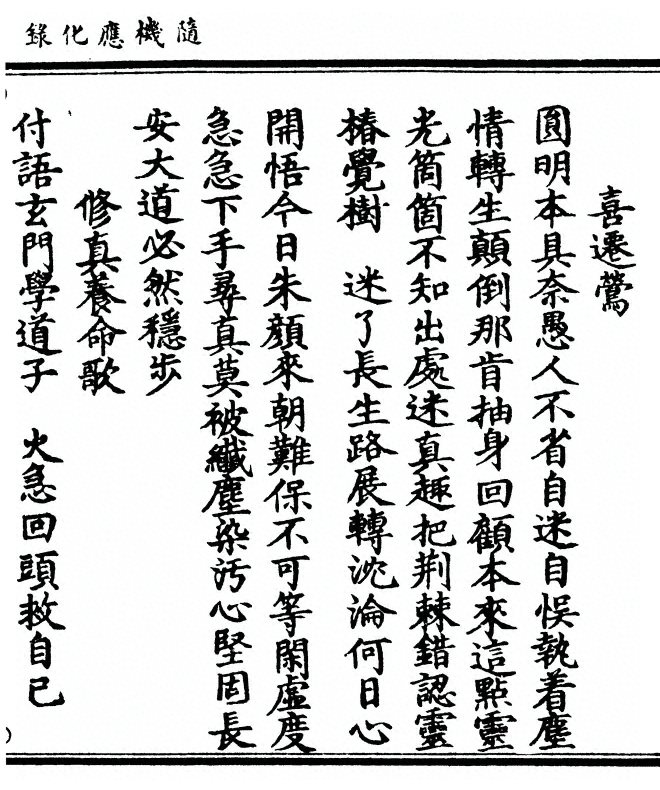 隨機應化錄
喜遷鶯
圓明本具奈愚人不省自迷自悞執着塵
情轉生顛倒那肯抽身回顧本來這點靈
光箇箇不知出處迷真趣把荆棘錯認靈
椿覺樹　迷了長生路展轉沈淪何日心
開悟今日朱顏來朝難保不可等閑虛度
急急下手尋真莫被纖塵染污心堅固長
安大道必然穩步
修真養命歌
付語玄門學道子　火急回頭救自己